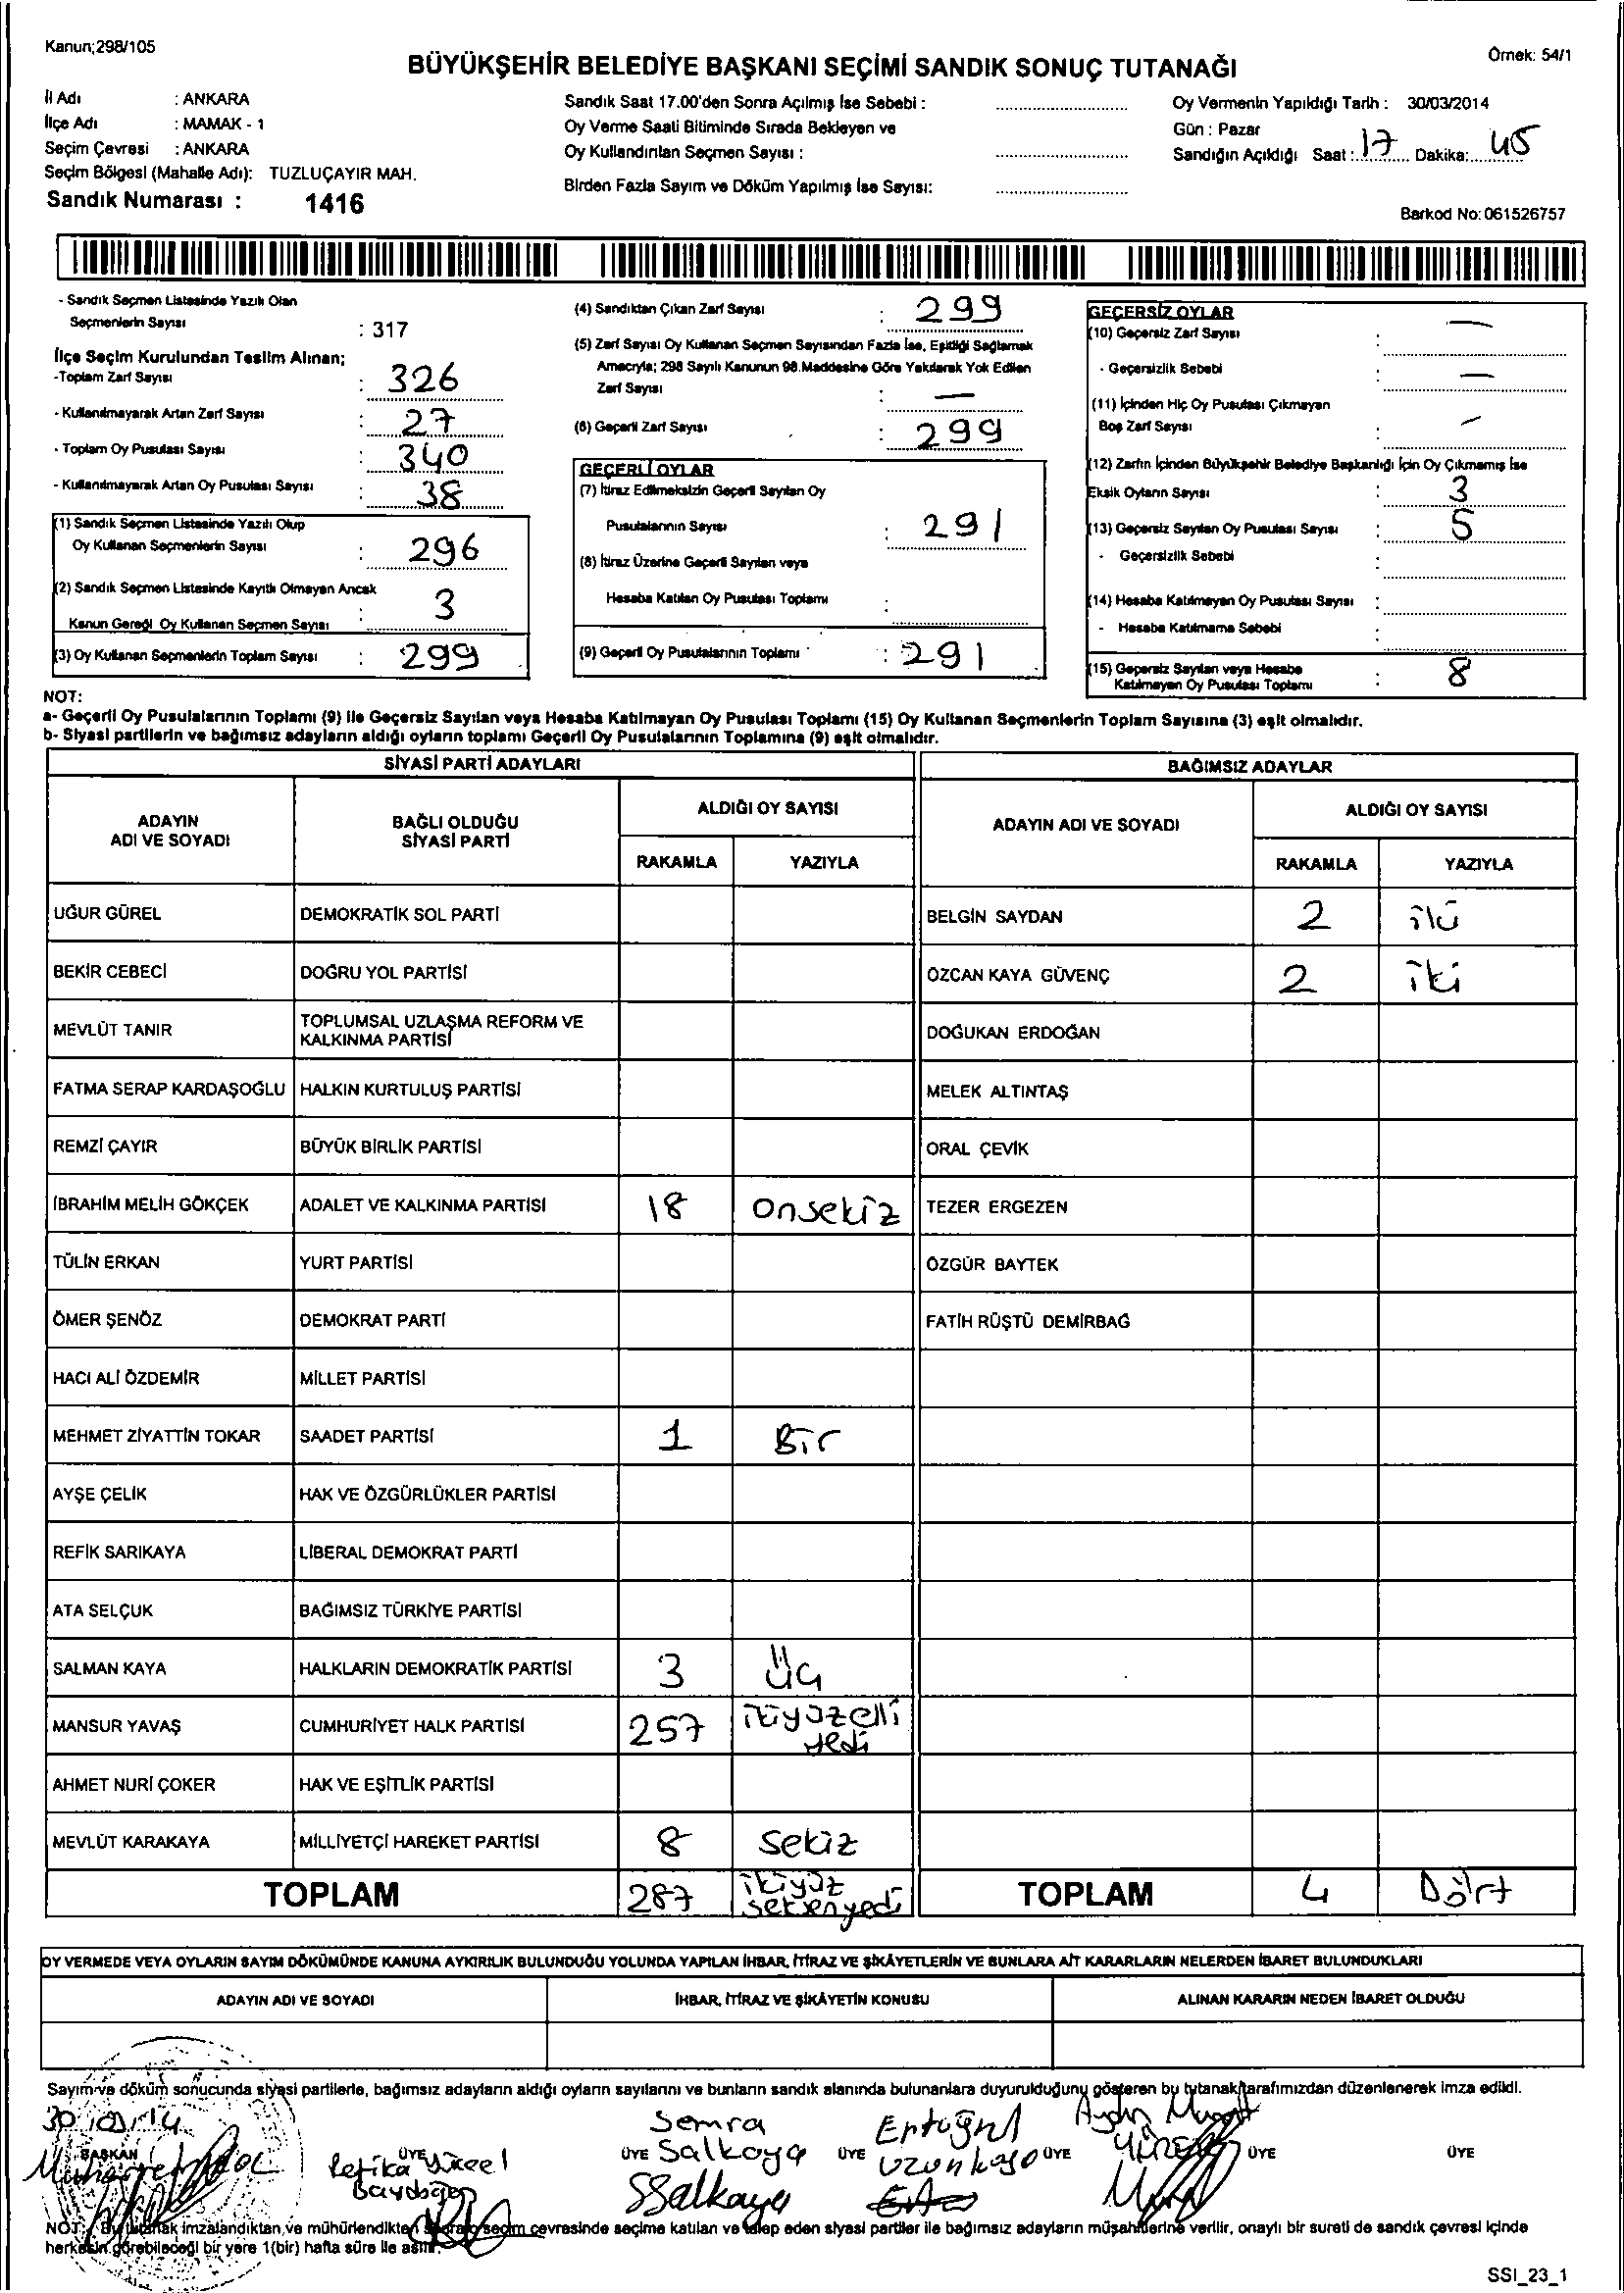 Kanun;298/105
BÜYÜKŞEHİR BELEDİYE BAŞKANI SEÇİMİ SANDIK SONUÇ TUTANAĞI
Örnek: 54/1
İl Adı : ANKARA
İlçe Adı : MAMAK - 1
Seçim Çevresi : ANKARA
Seçim Bölgesi (Mahalle Adı): TUZLUÇAYIR MAH.
Sandık Numarası : 1416
Sandık Saat 17.00'den Sonra Açılmış İse Sebebi :
Oy Verme Saati Bitiminde Sırada Bekleyen ve
Oy Kullandırılan Seçmen Sayısı :
Birden Fazla Sayım ve Döküm Yapılmış İse Sayısı:
Oy Vermenin Yapıldığı Tarih : 30/03/2014
Gün : Pazar
Sandığın Açıldığı Saat : 17 Dakika: 45
Barkod No: 061526757
- Sandık Seçmen Listesinde Yazılı Olan
Seçmenlerin Sayısı : 317
İlçe Seçim Kurulundan Teslim Alınan;
-Toplam Zarf Sayısı : 326
- Kullanılmayarak Artan Zarf Sayısı : 27
- Toplam Oy Pusulası Sayısı : 340
- Kullanılmayarak Artan Oy Pusulası Sayısı : 38
(1) Sandık Seçmen Listesinde Yazılı Olup
Oy Kullanan Seçmenlerin Sayısı : 296
(2) Sandık Seçmen Listesinde Kayıtlı Olmayan Ancak
Kanun Gereği Oy Kullanan Seçmen Sayısı : 3
(3) Oy Kullanan Seçmenlerin Toplam Sayısı : 299
(4) Sandıktan Çıkan Zarf Sayısı : 299
(5) Zarf Sayısı Oy Kullanan Seçmen Sayısından Fazla İse, Eşitliği Sağlamak
Amacıyla; 298 Sayılı Kanunun 98.Maddesine Göre Yakılarak Yok Edilen
Zarf Sayısı : —
(6) Geçerli Zarf Sayısı : 299
GEÇERLİ OYLAR
(7) İtiraz Edilmeksizin Geçerli Sayılan Oy
Pusulalarının Sayısı : 291
(8) İtiraz Üzerine Geçerli Sayılan veya
Hesaba Katılan Oy Pusulası Toplamı :
(9) Geçerli Oy Pusulalarının Toplamı : 291
GEÇERSİZ OYLAR
(10) Geçersiz Zarf Sayısı : —
- Geçersizlik Sebebi : —
(11) İçinden Hiç Oy Pusulası Çıkmayan
Boş Zarf Sayısı : —
(12) Zarfın İçinden Büyükşehir Belediye Başkanlığı İçin Oy Çıkmamış İse
Eksik Oyların Sayısı : 3
(13) Geçersiz Sayılan Oy Pusulası Sayısı : 5
- Geçersizlik Sebebi :
(14) Hesaba Katılmayan Oy Pusulası Sayısı :
- Hesaba Katılmama Sebebi :
(15) Geçersiz Sayılan veya Hesaba
Katılmayan Oy Pusulası Toplamı : 8
NOT:
a- Geçerli Oy Pusulalarının Toplamı (9) ile Geçersiz Sayılan veya Hesaba Katılmayan Oy Pusulası Toplamı (15) Oy Kullanan Seçmenlerin Toplam Sayısına (3) eşit olmalıdır.
b- Siyasi partilerin ve bağımsız adayların aldığı oyların toplamı Geçerli Oy Pusulalarının Toplamına (9) eşit olmalıdır.
SİYASİ PARTİ ADAYLARI
ADAYIN
ADI VE SOYADI
BAĞLI OLDUĞU
SİYASİ PARTİ
ALDIĞI OY SAYISI
RAKAMLA YAZIYLA
UĞUR GÜREL DEMOKRATİK SOL PARTİ
BEKİR CEBECİ DOĞRU YOL PARTİSİ
MEVLÜT TANIR TOPLUMSAL UZLAŞMA REFORM VE
KALKINMA PARTİSİ
FATMA SERAP KARDAŞOĞLU HALKIN KURTULUŞ PARTİSİ
REMZİ ÇAYIR BÜYÜK BİRLİK PARTİSİ
İBRAHİM MELİH GÖKÇEK ADALET VE KALKINMA PARTİSİ 18 onsekiz
TÜLİN ERKAN YURT PARTİSİ
ÖMER ŞENÖZ DEMOKRAT PARTİ
HACI ALİ ÖZDEMİR MİLLET PARTİSİ
MEHMET ZİYATTİN TOKAR SAADET PARTİSİ 1 Bir
AYŞE ÇELİK HAK VE ÖZGÜRLÜKLER PARTİSİ
REFİK SARIKAYA LİBERAL DEMOKRAT PARTİ
ATA SELÇUK BAĞIMSIZ TÜRKİYE PARTİSİ
SALMAN KAYA HALKLARIN DEMOKRATİK PARTİSİ 3 Üç
MANSUR YAVAŞ CUMHURİYET HALK PARTİSİ 257 ikiyüzelli
yedi
AHMET NURİ ÇOKER HAK VE EŞİTLİK PARTİSİ
MEVLÜT KARAKAYA MİLLİYETÇİ HAREKET PARTİSİ 8 sekiz
TOPLAM 287 ikiyüz
seksenyedi
BAĞIMSIZ ADAYLAR
ADAYIN ADI VE SOYADI
ALDIĞI OY SAYISI
RAKAMLA YAZIYLA
BELGİN SAYDAN 2 iki
ÖZCAN KAYA GÜVENÇ 2 iki
DOĞUKAN ERDOĞAN
MELEK ALTINTAŞ
ORAL ÇEVİK
TEZER ERGEZEN
ÖZGÜR BAYTEK
FATİH RÜŞTÜ DEMİRBAĞ
TOPLAM 4 Dört
OY VERMEDE VEYA OYLARIN SAYIM DÖKÜMÜNDE KANUNA AYKIRILIK BULUNDUĞU YOLUNDA YAPILAN İHBAR, İTİRAZ VE ŞİKÂYETLERİN VE BUNLARA AİT KARARLARIN NELERDEN İBARET BULUNDUKLARI
ADAYIN ADI VE SOYADI İHBAR, İTİRAZ VE ŞİKÂYETİN KONUSU ALINAN KARARIN NEDEN İBARET OLDUĞU
Sayım ve döküm sonucunda siyasi partilerle, bağımsız adayların aldığı oyların sayılarını ve bunların sandık alanında bulunanlara duyurulduğunu gösteren bu tutanak tarafımızdan düzenlenerek imza edildi.
BAŞKAN ÜYE ÜYE ÜYE ÜYE ÜYE ÜYE
Refika Yücel
Baydoğan
Semra
Salkaya
SSalkaya
Ertuğrul
Uzunkaya
Aydın
NOT: Bu tutanak imzalandıktan ve mühürlendikten sonra o seçim çevresinde seçime katılan ve talep eden siyasi partiler ile bağımsız adayların müşahitlerine verilir, onaylı bir sureti de sandık çevresi içinde
herkesin görebileceği bir yere 1(bir) hafta süre ile asılır.
SSI_23_1